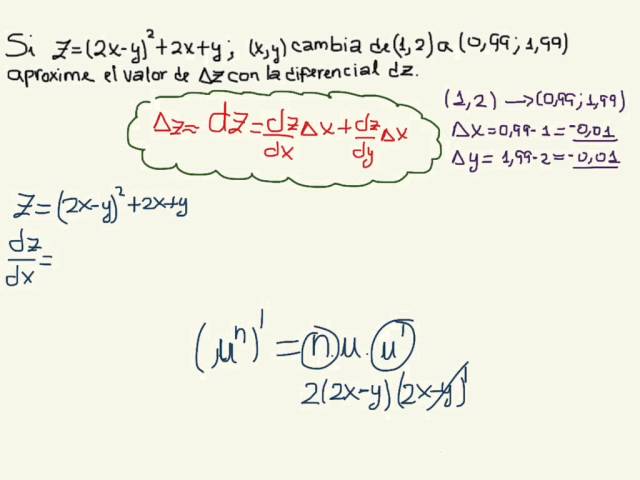 Si Z=(2x-y)²+2x+y; (x,y) cambia de (1,2) a (0,99;1,99)
aproxime el valor de ΔZ con la diferencial dz.
(1,2) →(0,99;1,99)
ΔZ≈ dZ=dz/dx Δx+dz/dy Δx
Δx=0,99-1=-0,01
Δy=1,99-2=-0,01
Z=(2x-y)²+2x+y
dz/dx=
(uⁿ)'=n.u.u'
2(2x-y)(2x-y)'